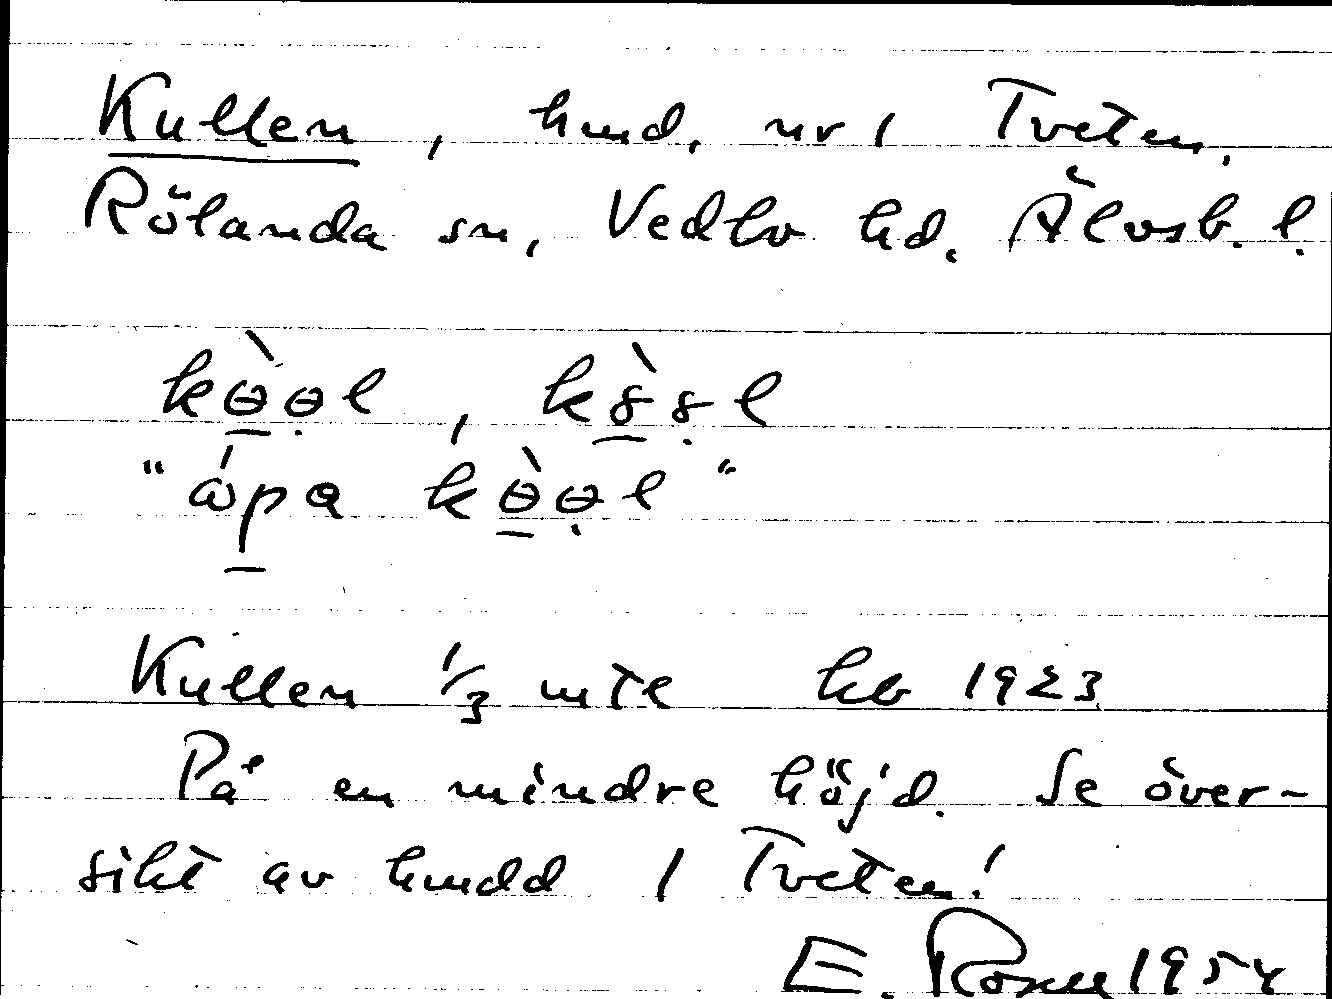 Kullen, hmd, nr 1 Tveten,
Rölanda sn, Vedbo hd. Älvsb. l.
kɵ̀ɵ̣l, kȣ̀ȣ̣l
"ápa kɵ̀ɵ̣l"
Kullen 1/3 mtl hb 1923
På en mindre höjd. Se över-
sikt av hmdd 1 Tveten!
E. Rosell 1954